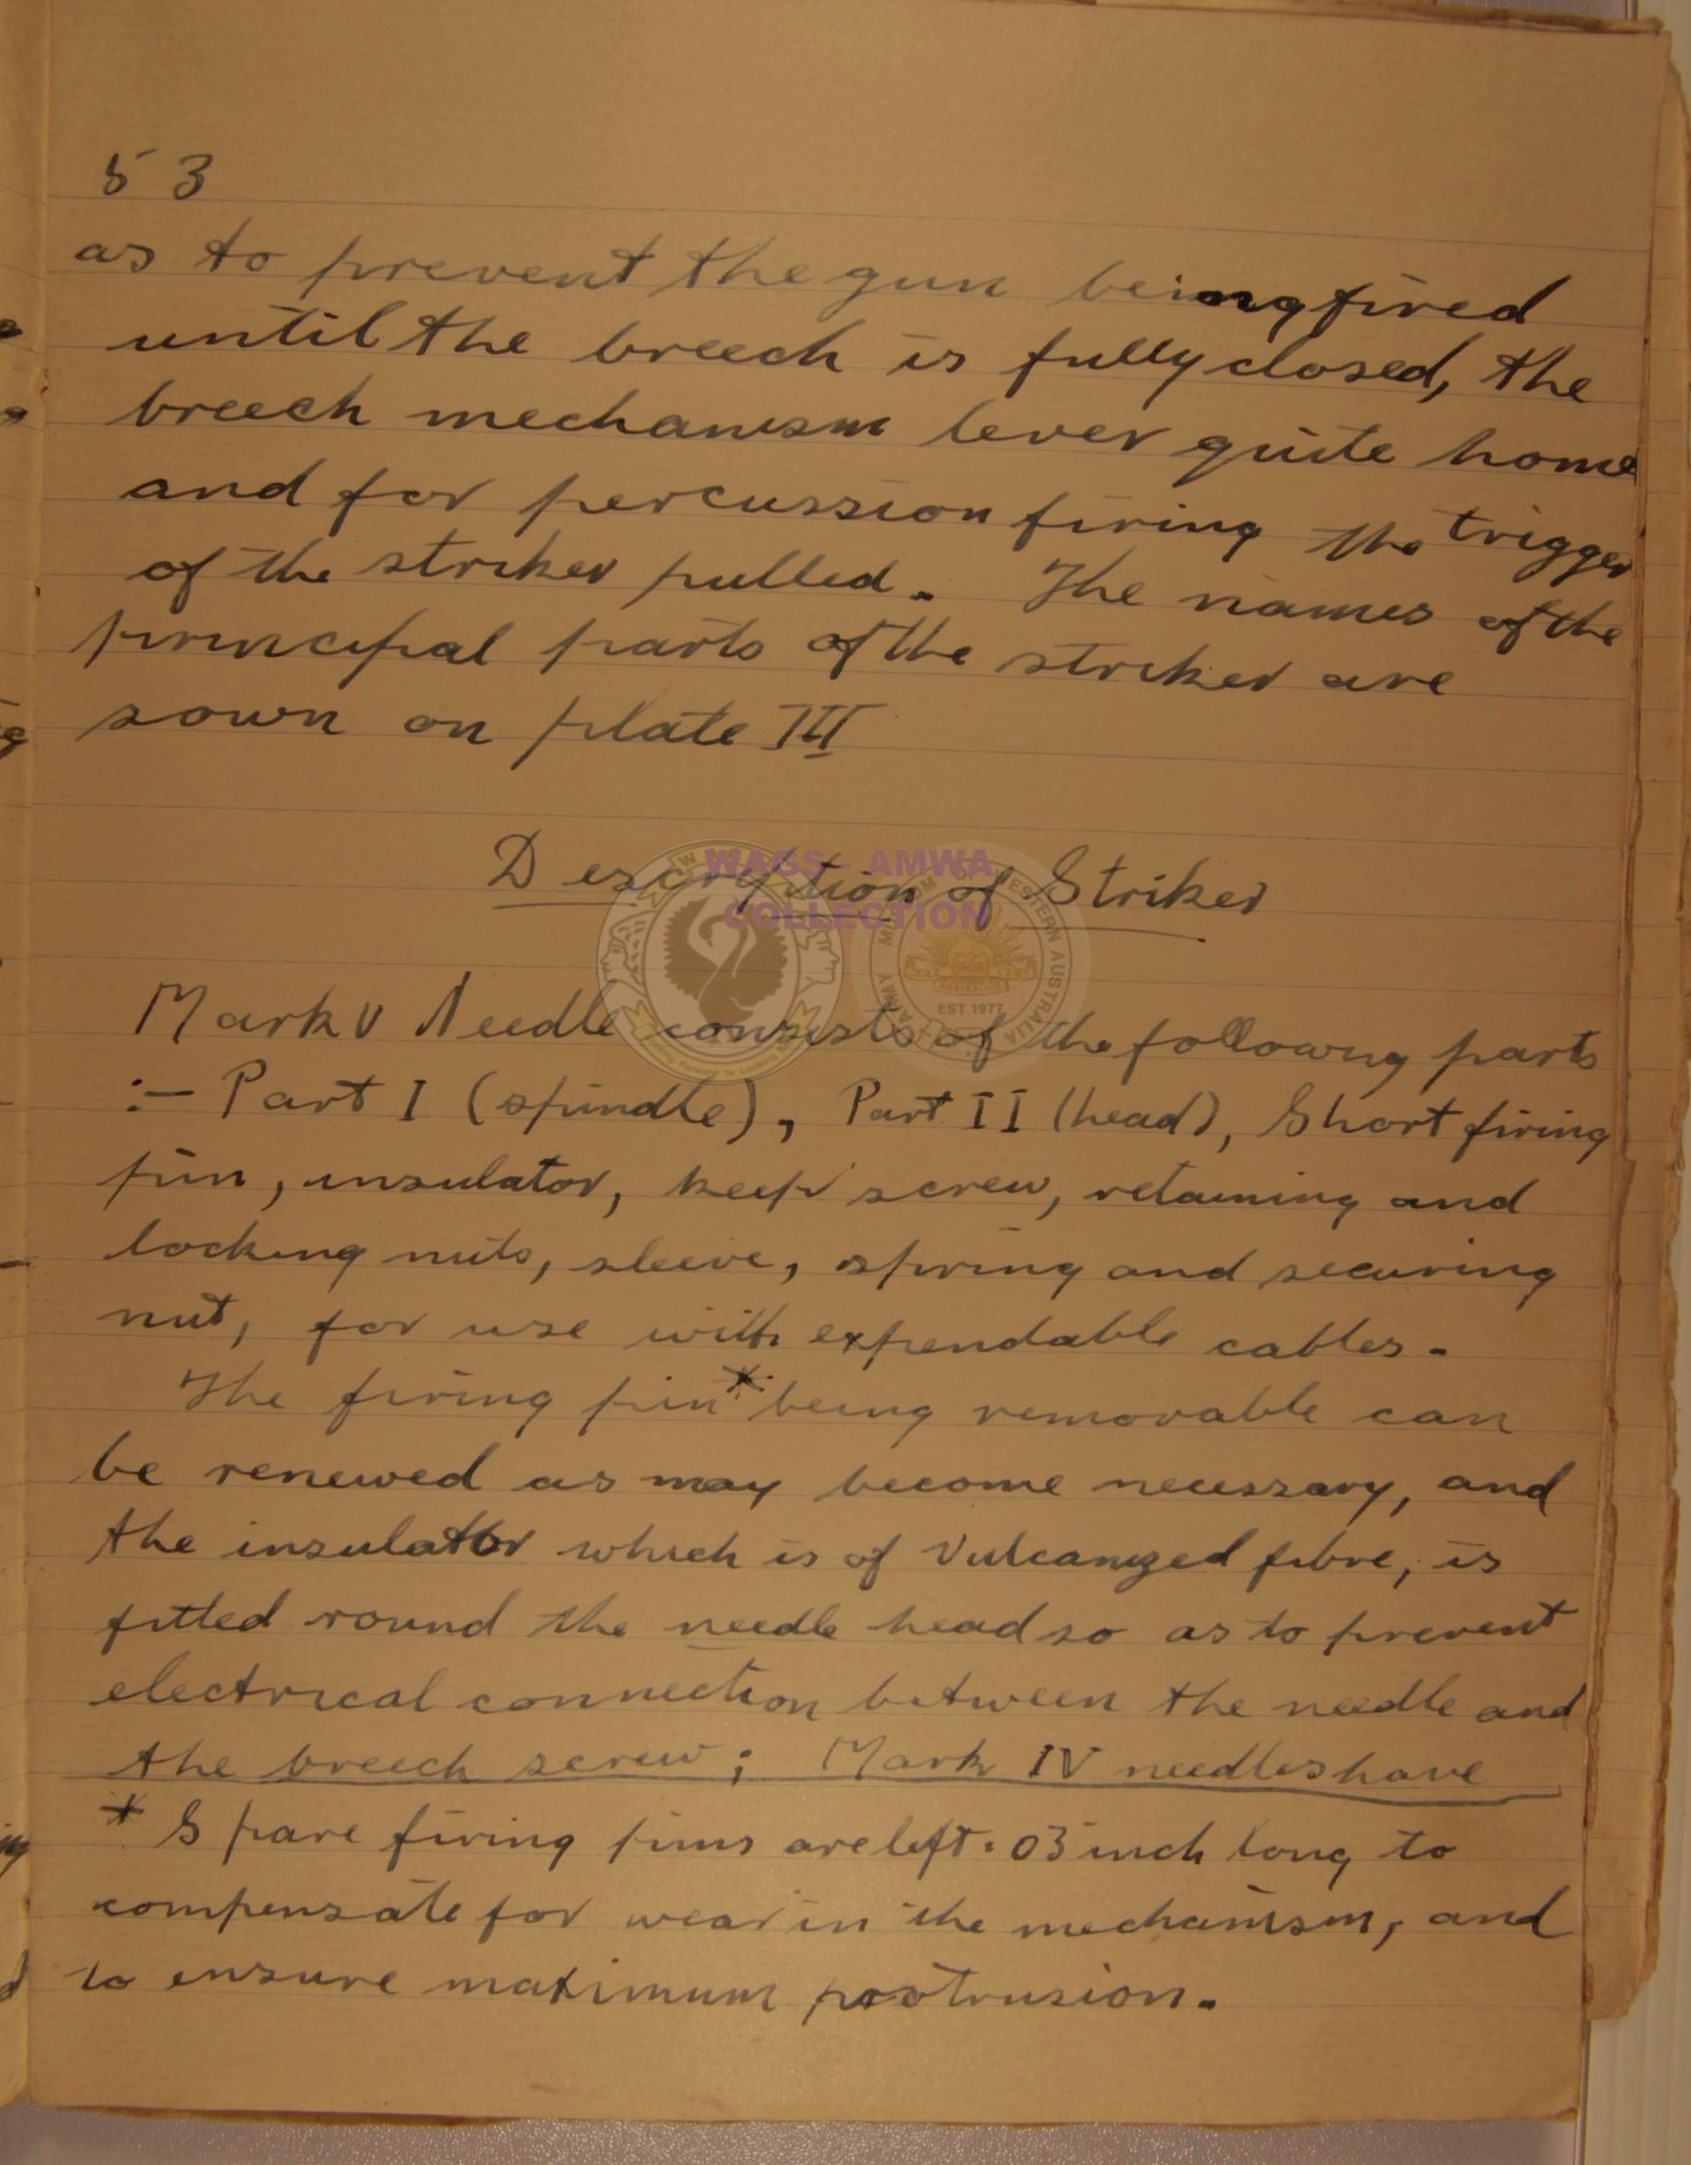 53
as to prevent the gun being fired
until the breech is fully closed, the
breech mechanism lever quite home
and for percussion firing the trigger
of the striker pulled. The names of the
principal parts of the striker are
sown on plate III
Description of Striker
WAGS - AMWA
COLLECTION
EST 1977
Mark V Needle consists of the following parts
:- Part I (spindle), Part II (head), Short firing
pin, insulator, keep screw, retaining and
locking nuts, sleeve, spring and securing
nut, for use with expendable cables.
The firing pin* being removable can
be renewed as may become necessary, and
the insulator which is of Vulcanized fibre, is
fitted round the needle head so as to prevent
electrical connection between the needle and
the breech screw; Mark IV needles have
* Spare firing pins are left .03 inch long to
compensate for wear in the mechanism, and
to ensure maximum protrusion.